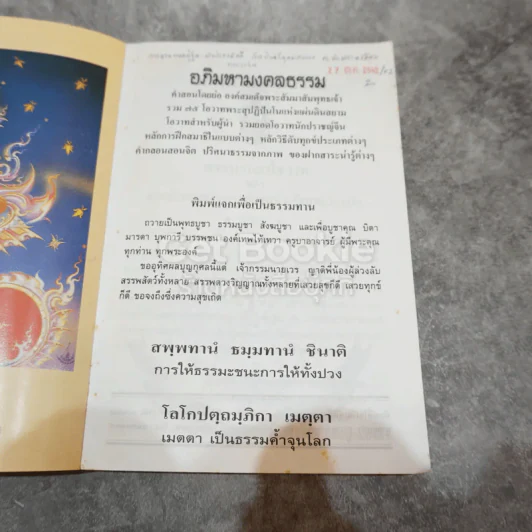 อภิมหามงคลธรรม
คำสอนโดยย่อ องค์สมเด็จพระสัมมาสัมพุทธเจ้า
รวม ๗๕ โอวาทพระสุปฏิปันโนแห่งแผ่นดินสยาม
โอวาทสำหรับผู้นำ รวมยอดโอวาทนักปราชญ์จีน
หลักการฝึกสมาธิในแบบต่างๆ หลักวิธีดับทุกข์ประเภทต่างๆ
คำกลอนสอนจิต ปริศนาธรรมจากภาพ ของฝากสาระน่ารู้ต่างๆ
พิมพ์แจกเพื่อเป็นธรรมทาน
ถวายเป็นพุทธบูชา ธรรมบูชา สังฆบูชา และเพื่อบูชาคุณ บิดา
มารดา บุพการี บรรพชน องค์เทพไท้เทวา ครูบาอาจารย์ ผู้มีพระคุณ
ทุกท่าน ทุกพระองค์
ขออุทิศผลบุญกุศลนี้แด่ เจ้ากรรมนายเวร ญาติพี่น้องผู้ล่วงลับ
สรรพสัตว์ทั้งหลาย สรรพดวงวิญญาณทั้งหลายที่เสวยสุขก็ดี เสวยทุกข์
ก็ดี ขอจงถึงซึ่งความสุขเถิด
Get Bookie
สพฺพทานํ ธมฺมทานํ ชินาติ
การให้ธรรมะชนะการให้ทั้งปวง
โลโกปตฺถมฺภิกา เมตฺตา
เมตตา เป็นธรรมค้ำจุนโลก